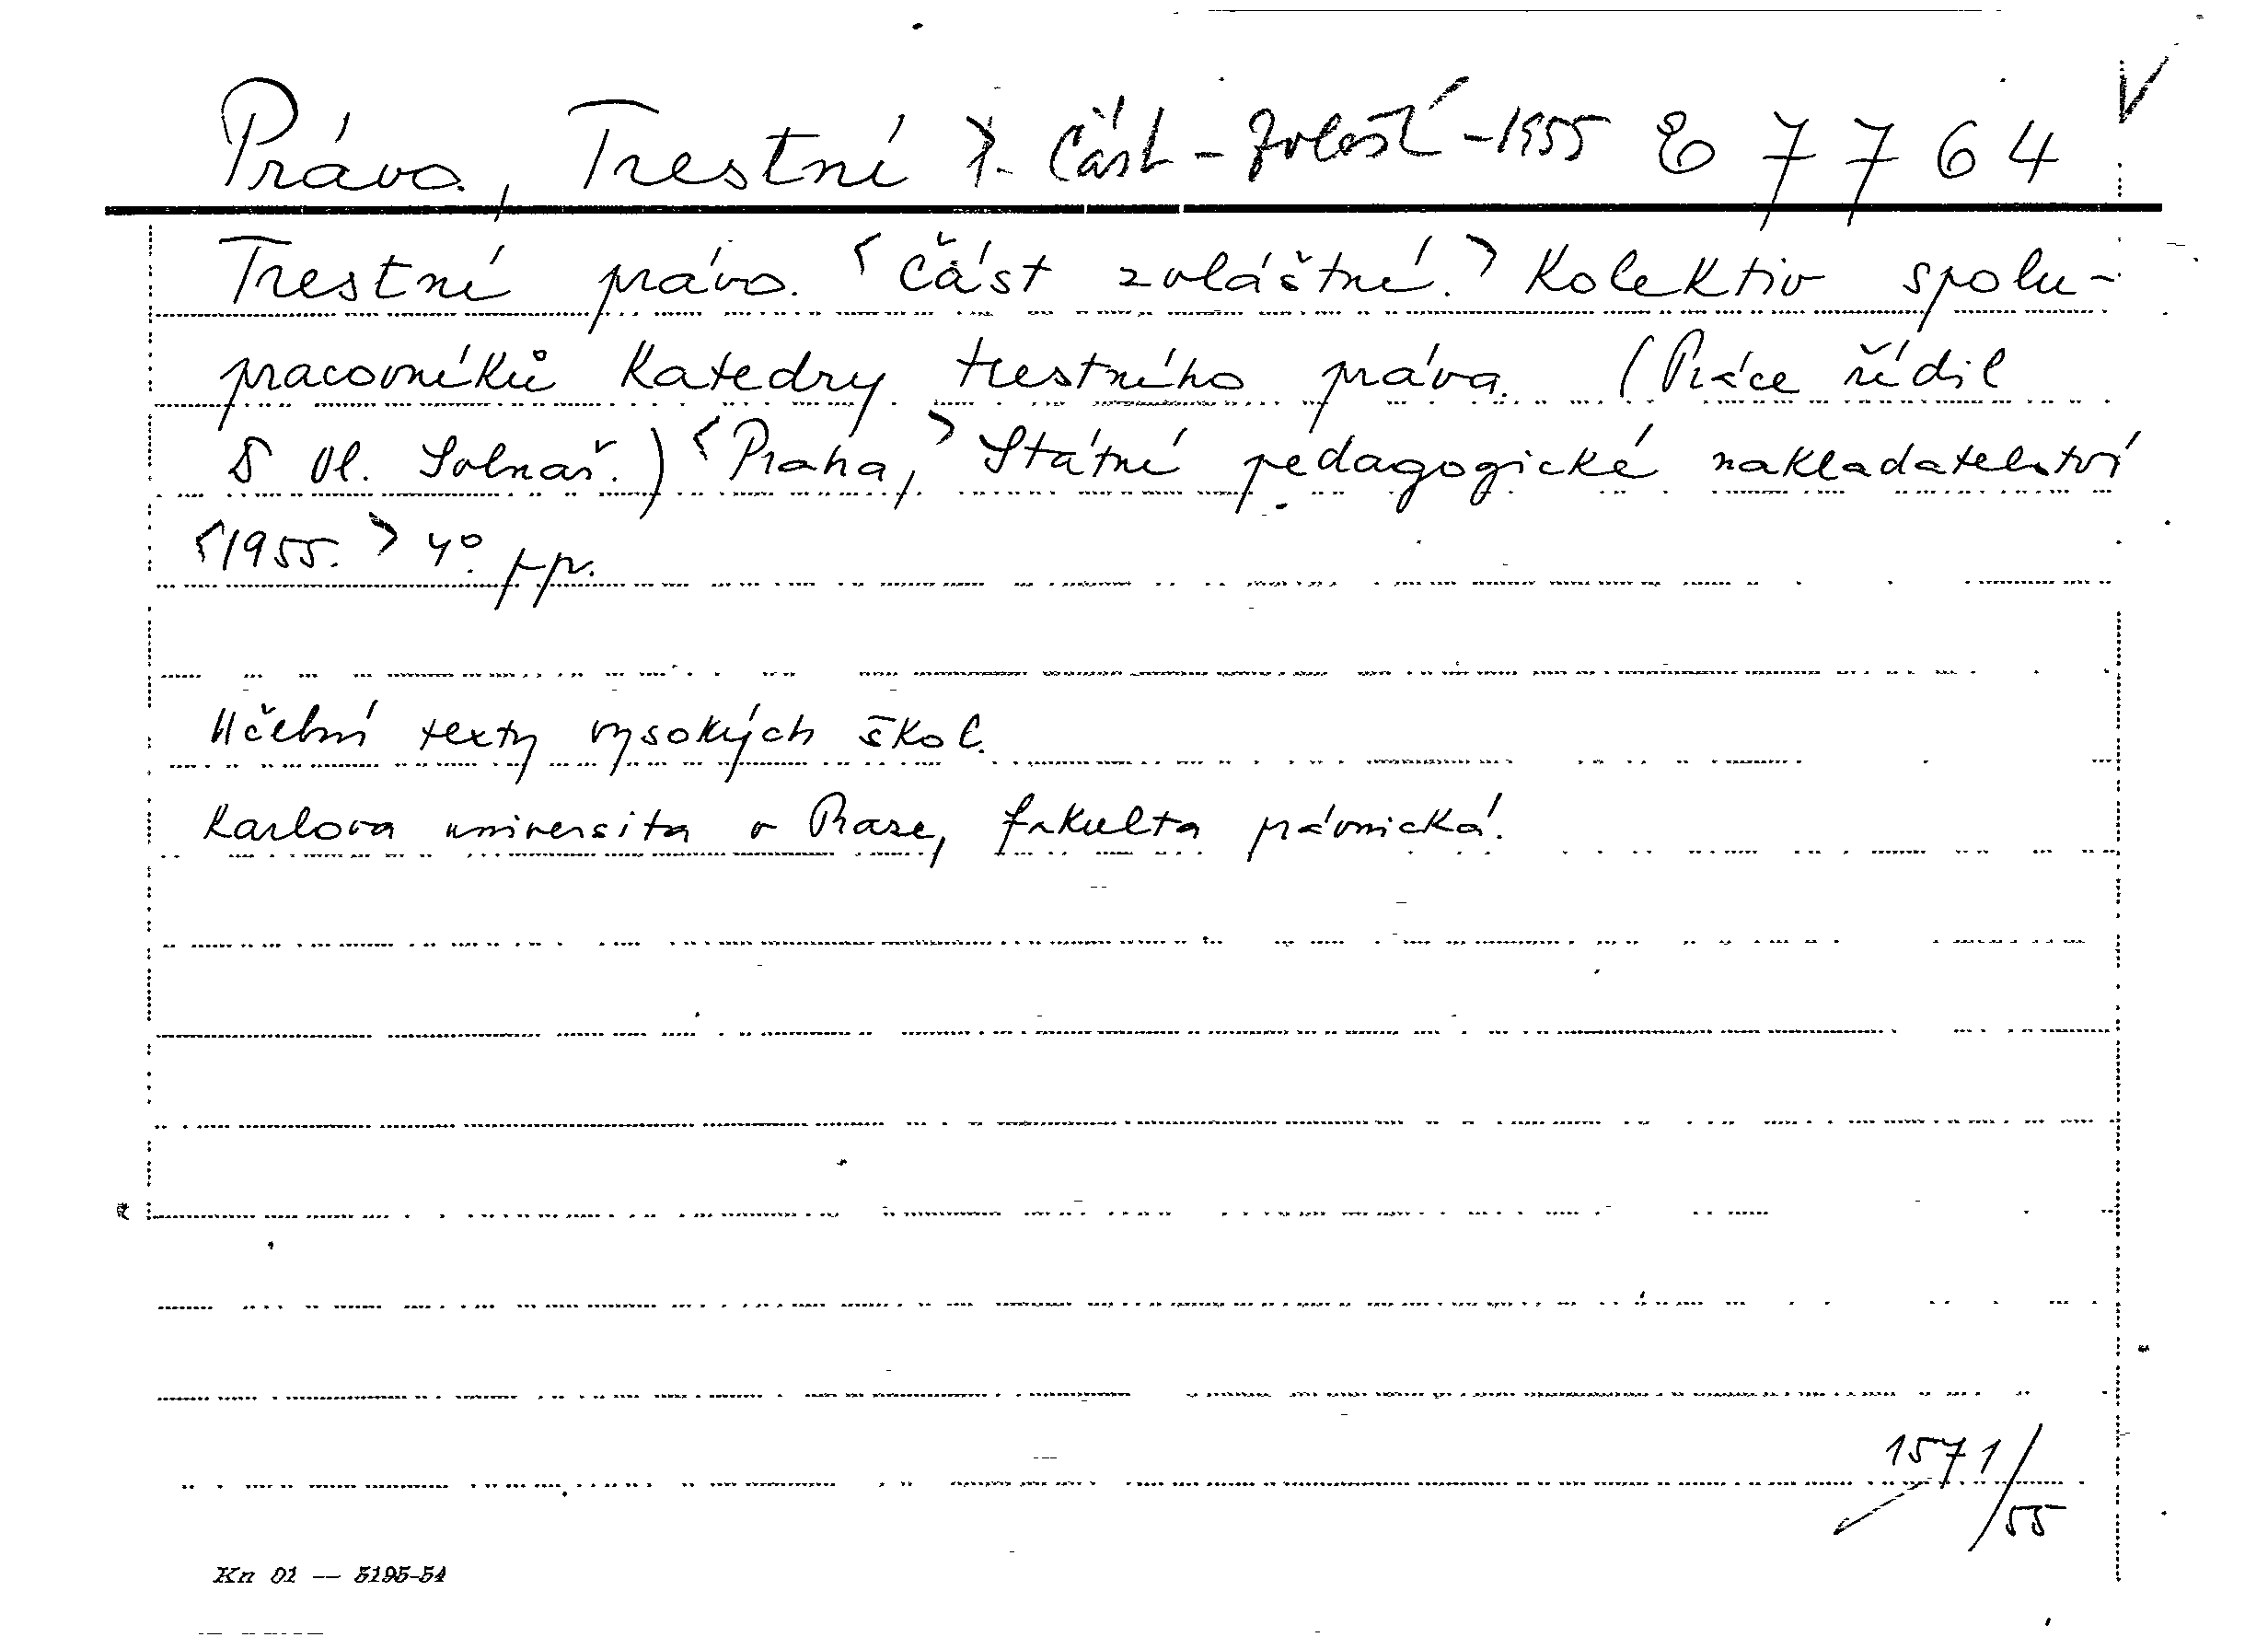 Právo, Trestní část - zvlášť - 1955 E 7764
Trestní právo. <Část zvláštní.> Kolektiv spolu-
pracovníků katedry trestního práva. (Práce řídil
Vl. Solnař.) <Praha,> Státní pedagogické nakladatelství
<1955.> 4°.
Učební texty vysokých škol.
Karlova universita v Praze, fakulta právnická.
1571/
55
Kn 01 — 5195-54